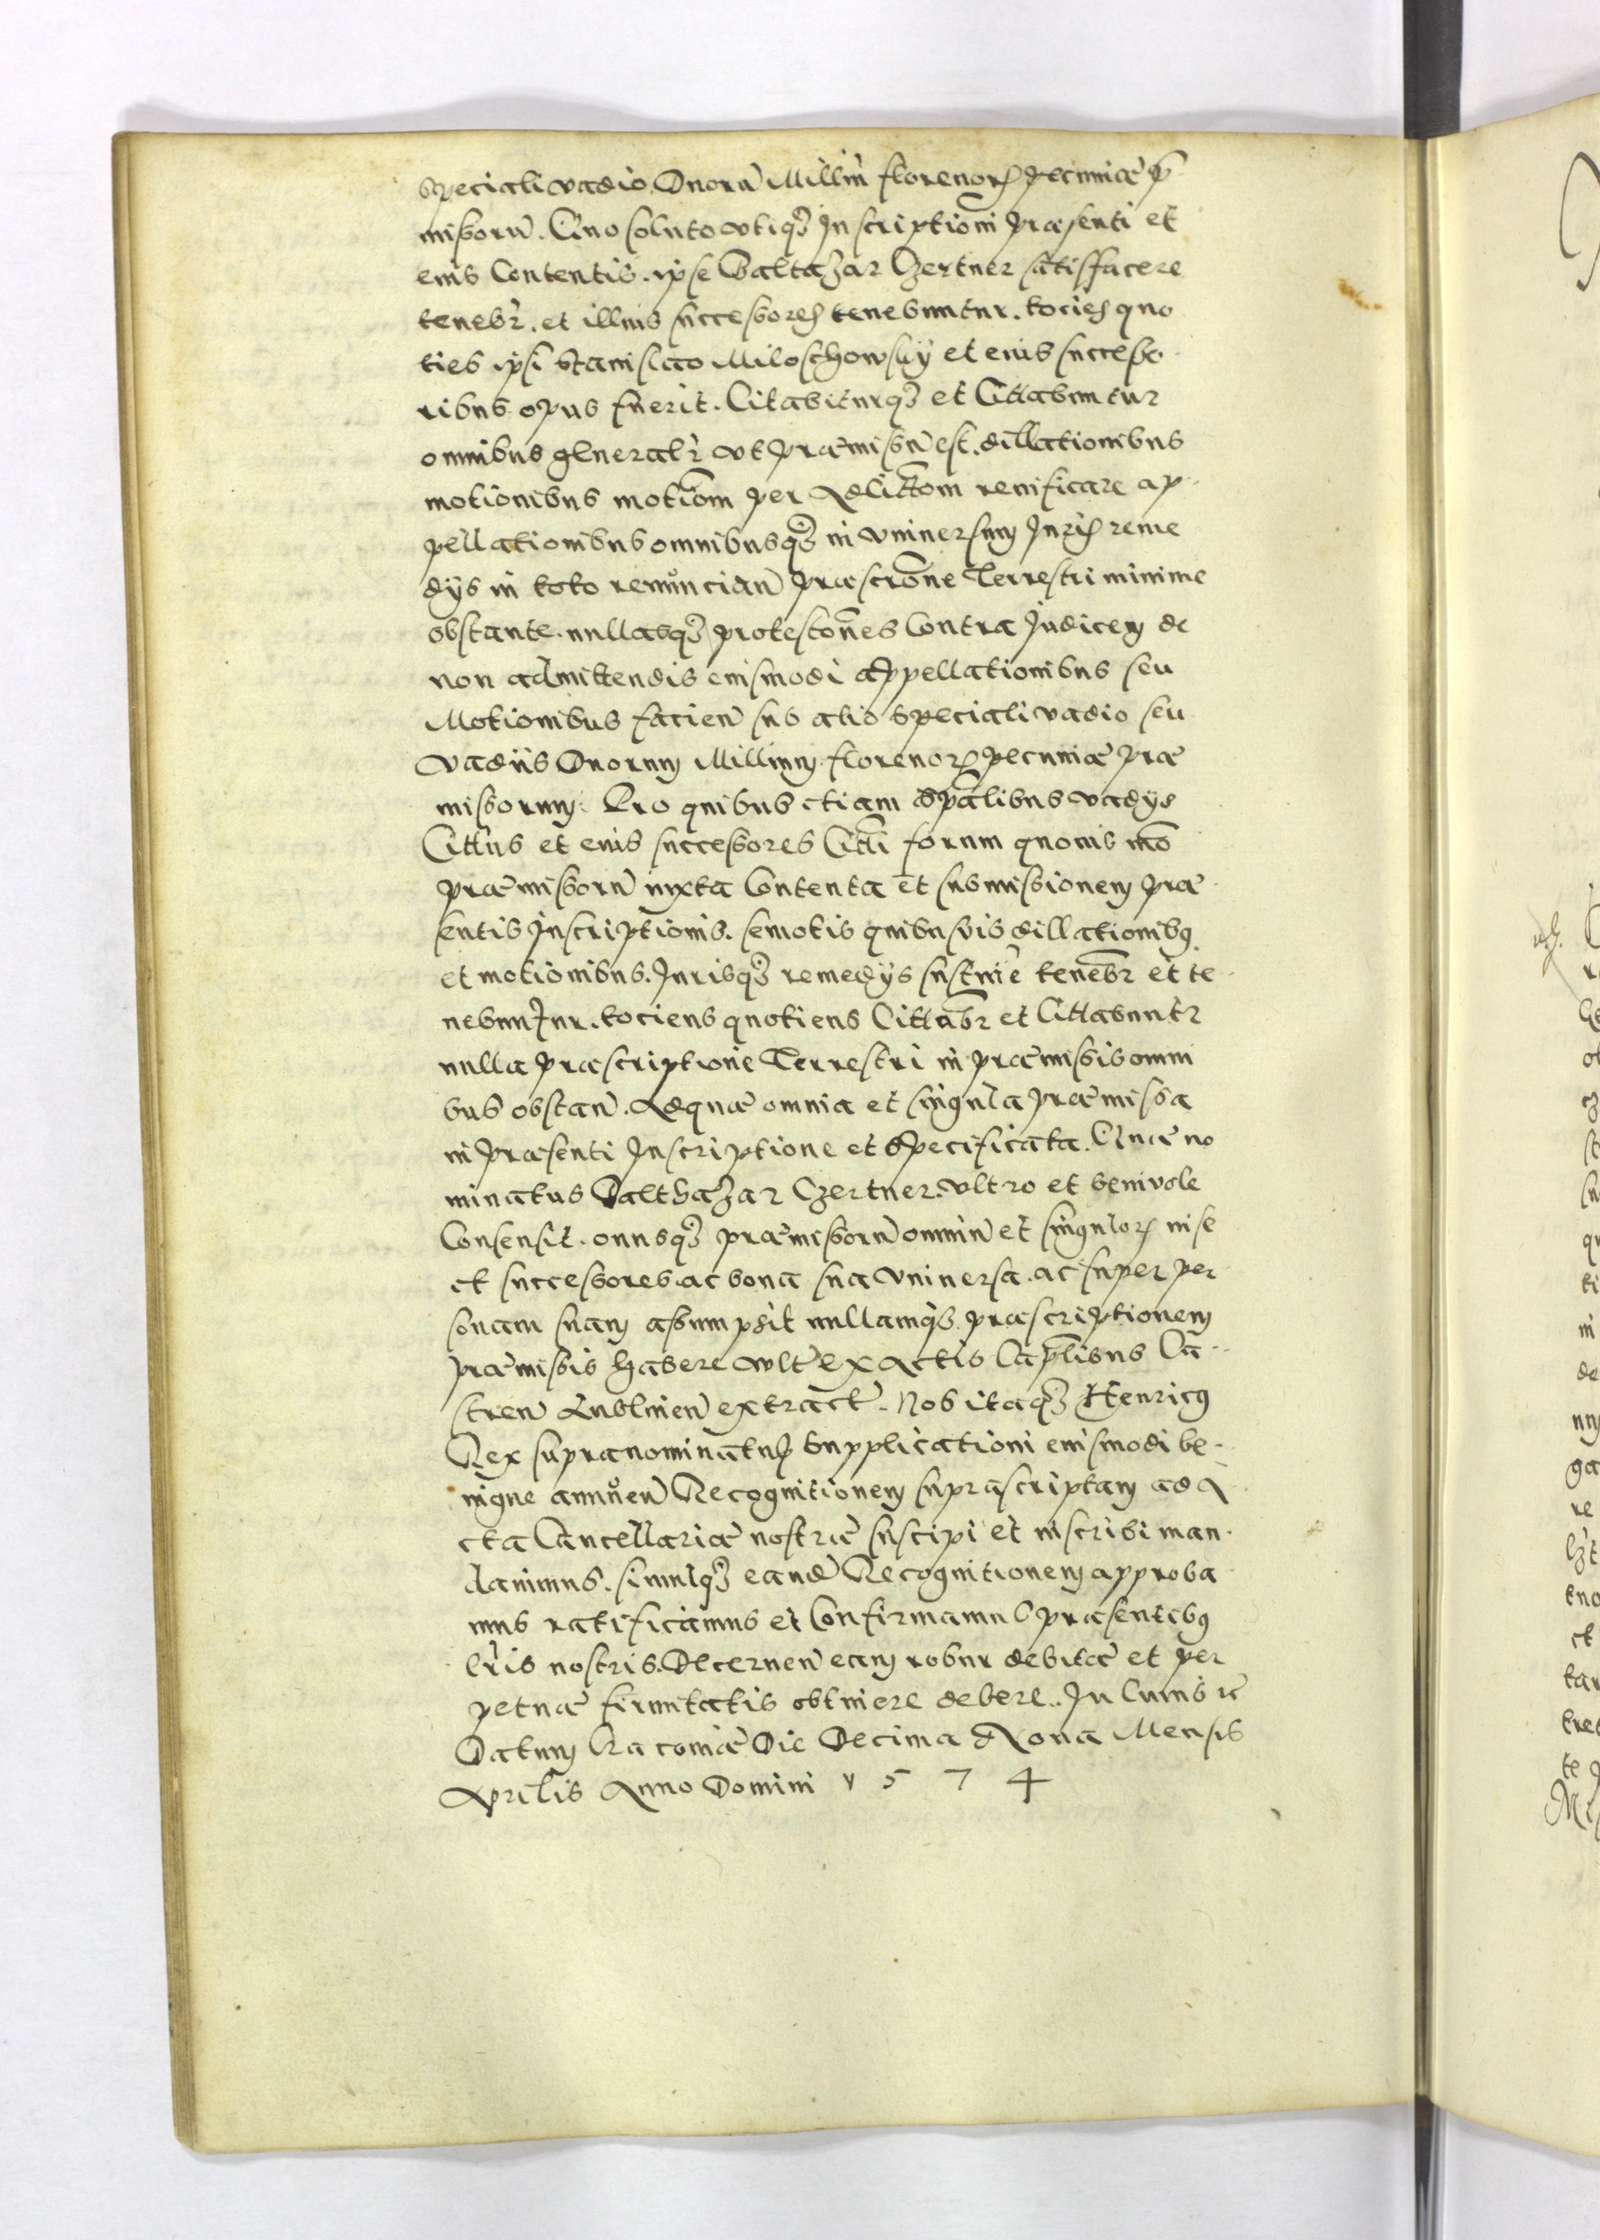 speciali vadio Duorũ Milliũ florenorꝫ pecuniæ p̃
missorũ. Quo soluto vtiqꝫ Inscriptioni præsenti et
eius Contentis. ipse Baltazar Czertner satisfacere
tenebr̃. et illius successores tenebuntur. tocies quo
ties ipsi Stanislao Miloschowsky et eius successo
ribus opus fuerit. Citabiturqꝫ et Citabuntur
omnibus generalr̃ vt præmissũ est. dillationibus
motionibus motiom̃ per Adcittom̃ reuificare ap
pellationibus omnibusqꝫ in vniuersum Juris reme
dys in toto renũncian̄ præscrõne Terrestri minime
obstante. nullasqꝫ protestõnes Contra Judicem de
non admittendis eiusmodi appellationibus seu
Motionibus facien̄ sub alio speciali vadio seu
vadiis Duorum Millium florenorꝫ pecuniæ præ
missorum. Pro quibus etiam spãlibus vadys
Cittus et eius successores Citti forum quouis mõ
præmissorũ iuxta Contenta et submissionem præ
sentis Inscriptionis. semotis quibusuis dillationibꝰ
et motionibus. Jurisqꝫ remedys sustinẽ tenebr̃ et te
nebuntur. tociens quotiens Cittabr̃ et Cittabuntr̃
nulla præscriptione Terrestri in præmissis omni
bus obstan̄. Adquæ omnia et singula præmissa
in præsenti Inscriptione et specificata. Quæ no
minatus Balthazar Czertner. vltro et beniuole
Consensit. onusqꝫ præmissorũ omniũ et singulorꝫ in se
et successores. ac bona sua vniuersa. ac super per
sonam suam assumpsit nullamqꝫ præscriptionem
præmissis habere vult ex Actis Cap̃libus Ca
stren̄ Lublinen̄ extract̃. Nos itaqꝫ Henricꝰ
Rex supranominatus supplicationi eiusmodi be
nigne annũen̄ Recognitionem suprascriptam ad A
cta Cancellariæ nostræ suscipi et inscribi man
dauimus. simulqꝫ eand̃ Recognitionem approba
mus ratificamus et Confirmamus præsentibꝰ
lr̃is nostris. Decernen̄ eam robur debitæ et per
petuæ firmitatis obtinere debere. In Cuius rẽ
Datum Cracouiæ Die Decima Nona Mensis
Aprilis Anno Domini 1574